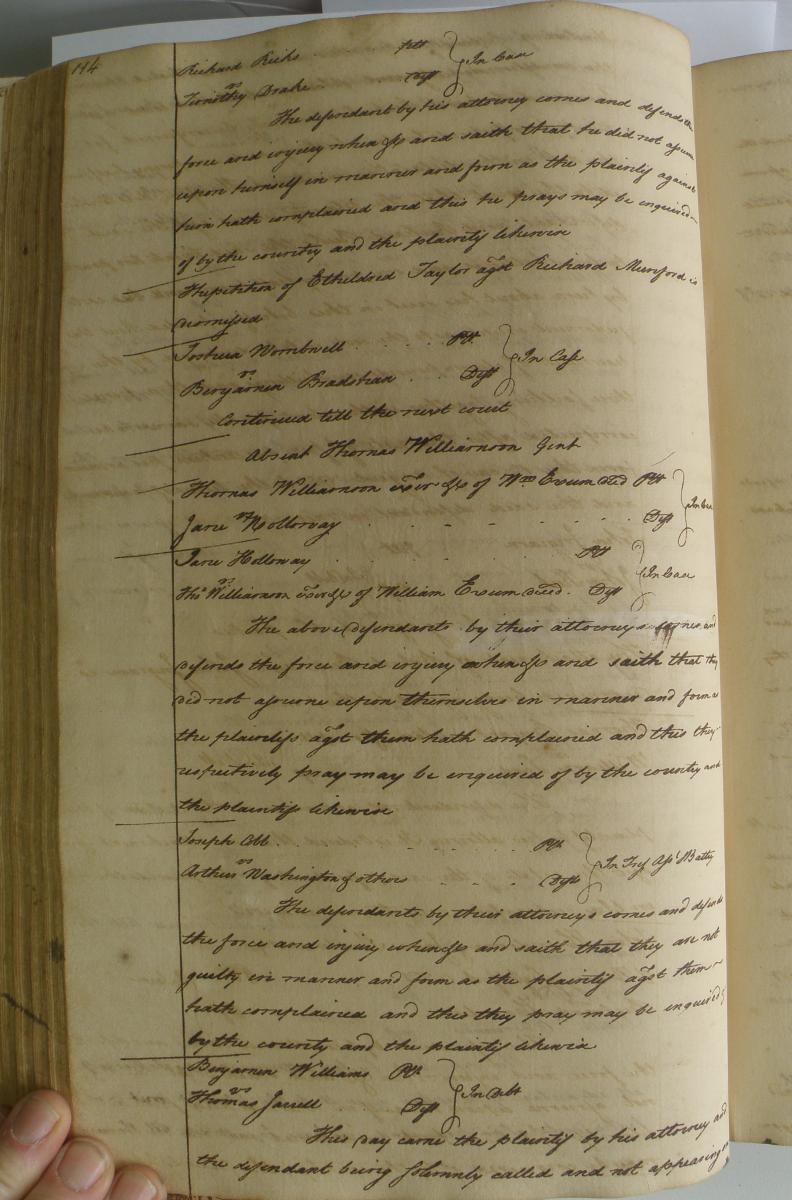 194
Richard Ricks . . . Plt } In Case
vs
Timothy Drake . . Deft
The defendant by his attorney comes and defends the
force and injury when &s and saith that he did not assume
upon himself in manner and form as the plaintif against
him hath complained and this he prays may be enquired
of by the country and the plaintif likewise
The petition of Etheldred Taylor agst Richard Munford is
dismissed
Joshua Wombwell . . . . Plt } In Case
vs
Benjamin Bradshaw . . Deft
Continued till the next court
Absent Thomas Williamson Gent
Thomas Williamson exor &s of Wm Exum decd Plt } In Case
vs
Jane Holloway . . - - - - - Deft
Jane Holloway . . . . . Plt } In Case
vs
Thos Williamson exor &s of William Exum decd. Deft
The above defendants by their attorneys comes and
defends the force and injury when &s and saith that they
did not assume upon themselves in manner and form as
the plaintifs agst them hath complained and this they
respectively pray may be enquired of by the country and
the plaintifs likewise
Joseph Cobb . . . . . Plt } In Tres Asst &Battry
vs
Arthur Washington & others . . . Defts
The defendants by their attorneys comes and defends
the force and injury when &s and saith that they are not
guilty in manner and form as the plaintif agst them
hath complained and this they pray may be enquired
by the country and the plaintif likewise
Benjamin Williams Plt } In Debt
vs
Thomas Jarrell . . . Deft
This day came the plaintif by his attorney and
the defendant being solemnly called and not appearing